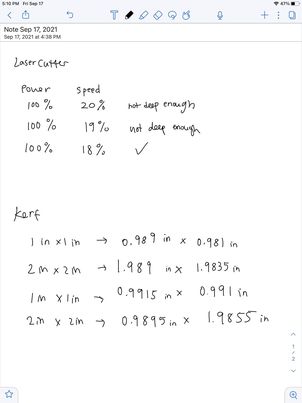 5:10 PM Fri Sep 17
47%
Note Sep 17, 2021
Sep 17, 2021 at 4:38 PM
Laser Cutter
Power Speed
100% 20% not deep enough
100% 19% not deep enough
100% 18% ✓
Kerf
1 in x 1 in → 0.989 in x 0.981 in
2 in x 2 in → 1.989 in x 1.9835 in
1 in x 1 in → 0.9915 in x 0.991 in
2 in x 2 in → 0.9895 in x 1.9855 in
1
2